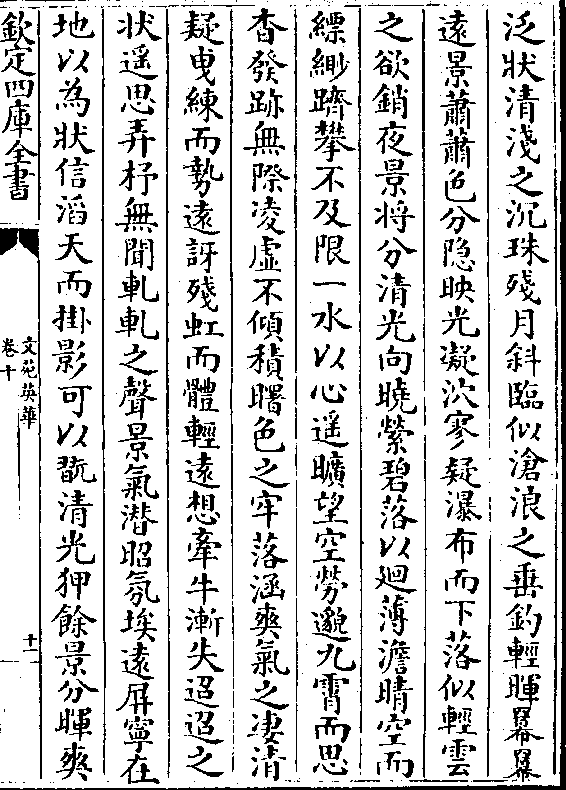 泛状清淺之沉珠殘月斜臨似滄浪之垂釣輕暉羃羃
遠景蕭蕭色分隐映光凝泬寥疑瀑布而下落似輕雲
之欲銷夜景将分清光向曉縈碧落以廻薄澹晴空而
縹緲躋攀不及限一水以心遥曠望空勞邈九霄而思
杳發跡無際凌虚不傾積曙色之牢落涵爽氣之凄清
疑曳練而勢遠訝殘虹而體輕遠想牽牛漸失迢迢之
状遥思弄杼無聞軋軋之聲景氣潜昭氛埃遠屏寧在
地以為状信滔天而掛影可以翫清光狎餘景分暉爽
欽定四庫全書
文苑英華
卷十
十一